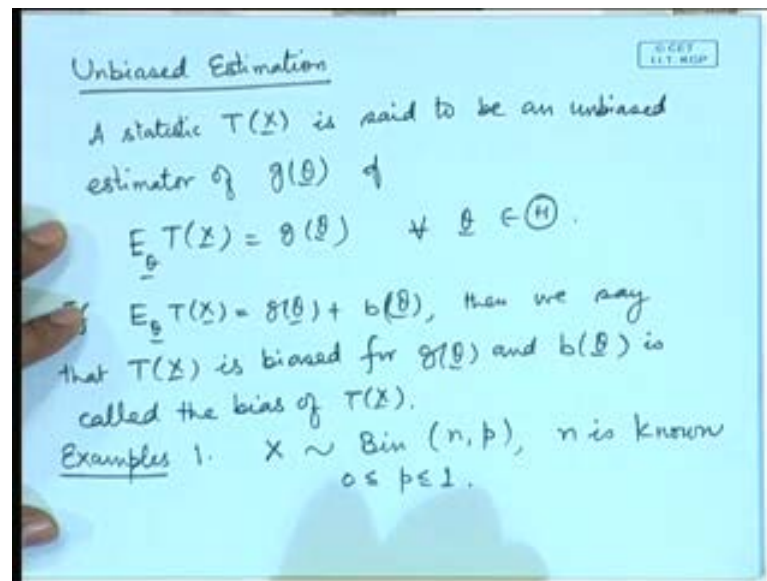 Unbiased Estimation
© CET
I.I.T. KGP
A statistic T(X̲) is said to be an unbiased
estimator of g(θ̲) if
E_θ̲ T(X̲) = g(θ̲) ∀ θ̲ ∈ Ⓗ.
If E_θ̲ T(X̲) = g(θ̲) + b(θ̲), then we say
that T(X̲) is biased for g(θ̲) and b(θ̲) is
called the bias of T(X̲).
Examples 1. X ~ Bin (n, p), n is known
0 ≤ p ≤ 1.